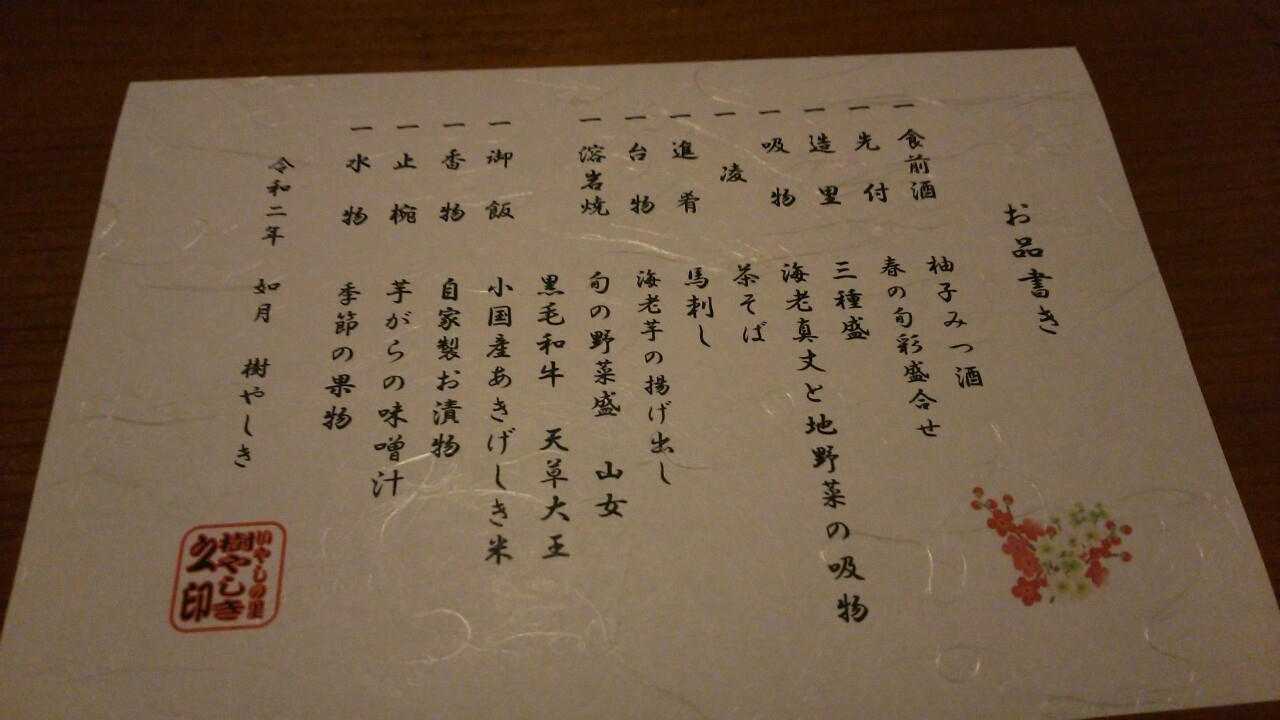 お品書き
一 食前酒 柚子みつ酒
一 先付 春の旬彩盛合せ
一 造里 三種盛
一 吸物 海老真丈と地野菜の吸物
一 凌 茶そば
一 進肴 馬刺し
一 台物 海老芋の揚げ出し
一 溶岩焼 旬の野菜盛 山女
黒毛和牛 天草大王
一 御飯 小国産あきげしき米
一 香物 自家製お漬物
一 止椀 芋がらの味噌汁
一 水物 季節の果物
令和二年 如月 樹やしき
いやしの里
樹やしき
之印